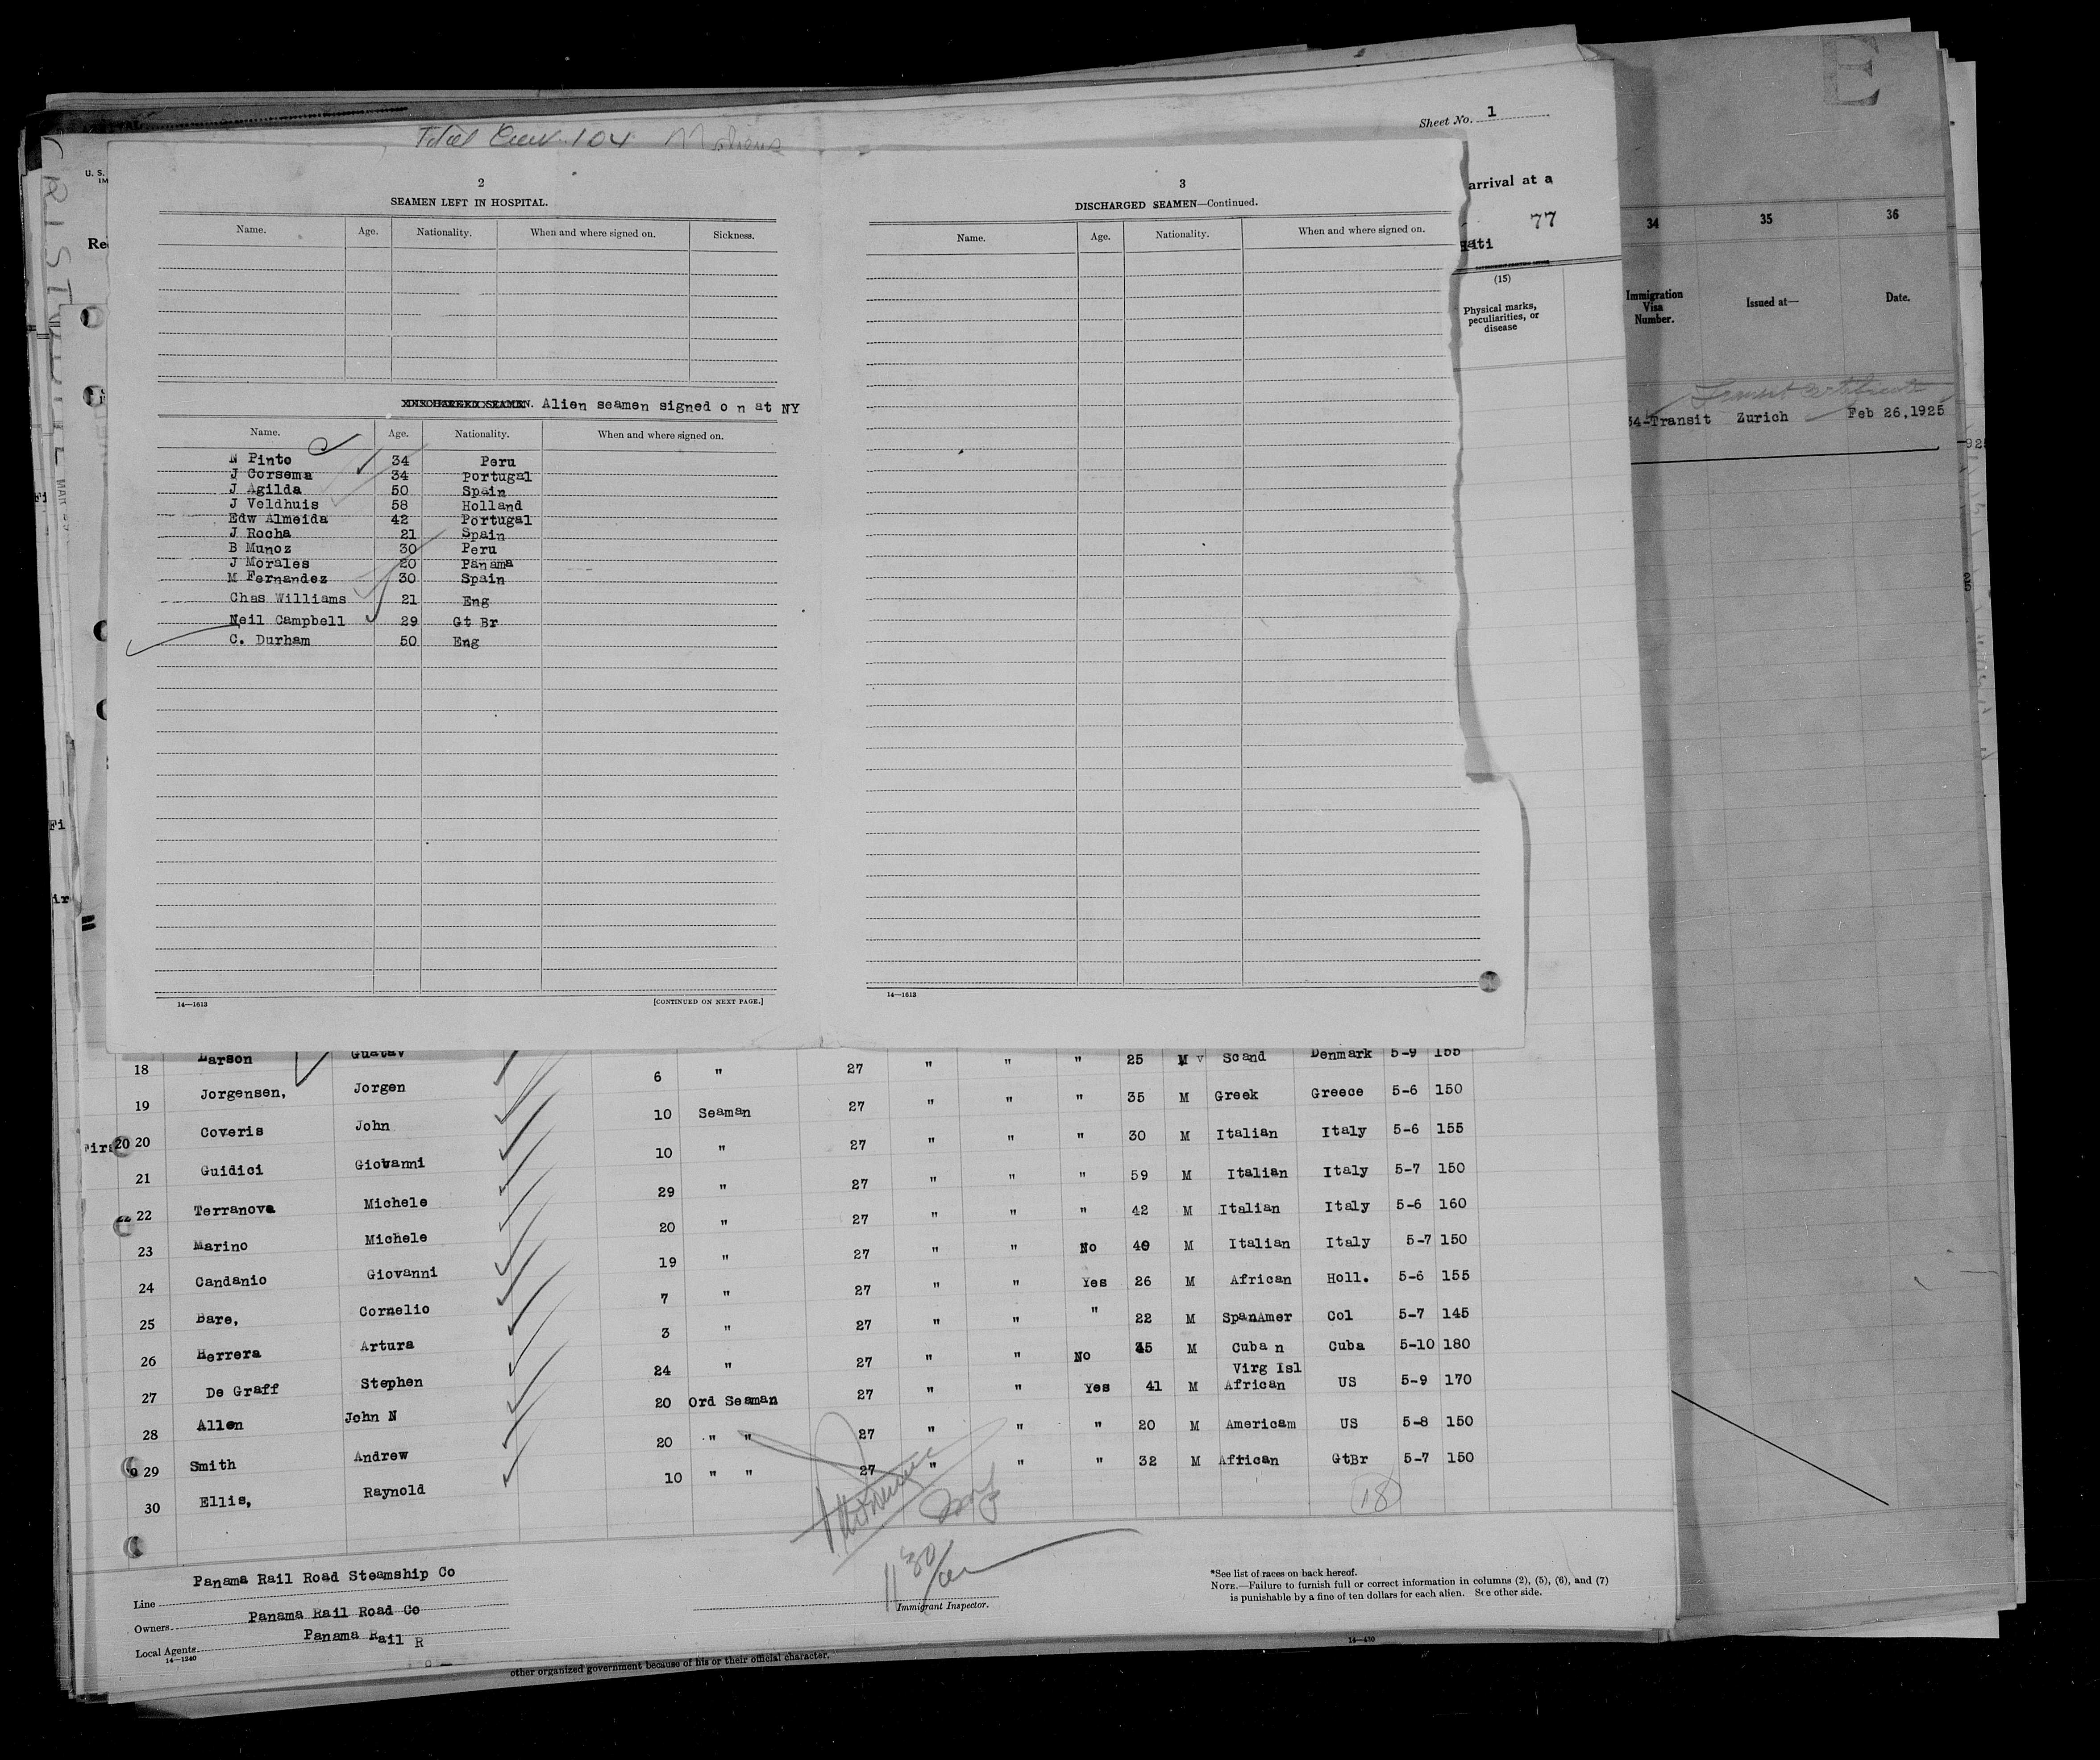 Total Crew 104
Sheet No. 1
U. S.
arrival at a
77
34 35 36
Immigration Visa Number. Issued at— Date.
(15)
Physical marks, peculiarities, or disease
34-Transit Zurich Feb 26,1925
2
SEAMEN LEFT IN HOSPITAL.
Name. Age. Nationality. When and where signed on. Sickness.
DISCHARGED SEAMEN. Alien seamen signed o n at NY
Name. Age. Nationality. When and where signed on.
N Pinto 34 Peru
J Corsema 34 Portugal
J Agilda 50 Spain
J Veldhuis 58 Holland
Edw Almeida 42 Portugal
J Rocha 21 Spain
B Munoz 30 Peru
J Morales 20 Panama
M Fernandez 30 Spain
Chas Williams 21 Eng
Neil Campbell 29 Gt Br
C. Durham 50 Eng
14—1613 [CONTINUED ON NEXT PAGE.]
3
DISCHARGED SEAMEN—Continued.
Name. Age. Nationality. When and where signed on.
14—1613
18 Larson Gustav 6 " 27 " " " 25 M Scand Denmark 5-9 155
19 Jorgensen, Jorgen 10 Seaman 27 " " " 35 M Greek Greece 5-6 150
20 Coveris John 10 " 27 " " " 30 M Italian Italy 5-6 155
21 Guidici Giovanni 29 " 27 " " " 59 M Italian Italy 5-7 150
22 Terranova Michele 20 " 27 " " " 42 M Italian Italy 5-6 160
23 Marino Michele 19 " 27 " " No 40 M Italian Italy 5-7 150
24 Candanio Giovanni 7 " 27 " " Yes 26 M African Holl. 5-6 155
25 Bare, Cornelio 3 " 27 " " " 22 M SpanAmer Col 5-7 145
26 Herrera Artura 24 " 27 " " No 35 M Cuba n Cuba 5-10 180
Virg Isl
27 De Graff Stephen 20 Ord Seaman 27 " " Yes 41 M African US 5-9 170
28 Allen John N 20 " " 27 " " " 20 M Americam US 5-8 150
29 Smith Andrew 10 " " 27 " " " 32 M African GtBr 5-7 150
30 Ellis, Raynold
18
1130
Line Panama Rail Road Steamship Co
Owners Panama Rail Road Co
Local Agents Panama Rail R
14—1240
Immigrant Inspector.
*See list of races on back hereof.
NOTE.—Failure to furnish full or correct information in columns (2), (5), (6), and (7)
is punishable by a fine of ten dollars for each alien. See other side.
14—430
other organized government because of his or their official character.